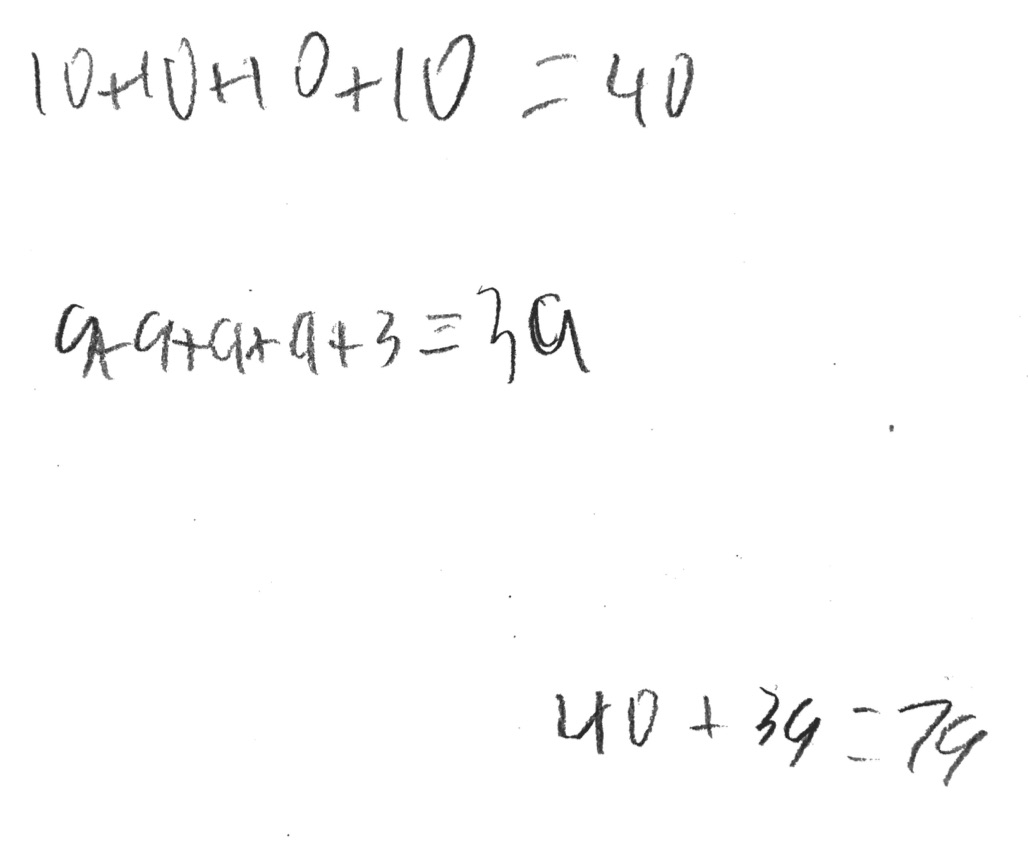 10+10+10+10=40
9+9+9+9+3=39
40+39=79